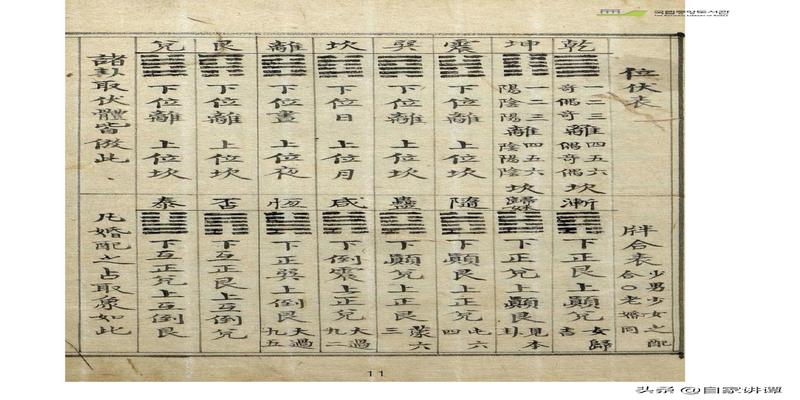 국립중앙도서관
THE NATIONAL LIBRARY OF KOREA
位伏表
牉合表 少男少女之配合〇老婚同
乾
一二三 奇偶奇 離 四五六 偶奇偶 坎
漸
下正艮 上正巽 女歸吉
坤
一二三 陽陰陽 離 四五六 陰陽陰 坎
歸妹
下正兌 上顚艮 見本卦
震
下位離 上位坎
隨
下顚艮 上正兌 比六四
巽
下位離 上位坎
蠱
下顚兌 上正艮 蒙六三
坎
下位日 上位月
咸
下倒震 上正兌 大過九二
離
下位晝 上位夜
恆
下正巽 上倒艮 大過九五
艮
下位離 上位坎
否
下互正艮 上互倒兌
兌
下位離 上位坎
泰
下互正兌 上互倒艮
諸卦取伏體皆倣此
凡婚配之占取象如此
11
头条 @自家讲谭